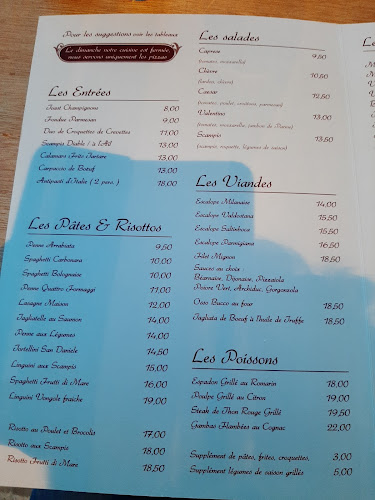 Pour les suggestions voir les tableaux
Le dimanche notre cuisine est fermée
nous servons uniquement les pizzas
Les Entrées
Toast Champignons 8,00
Fondue Parmesan 9,00
Duo de Croquettes de Crevettes 11,00
Scampis Diable / à l'Ail 13,00
Calamars Frits Tartare 13,00
Carpaccio de Bœuf 13,00
Antipasti d'Italie ( 2 pers. ) 18,00
Les Pâtes & Risottos
Penne Arrabiata 9,50
Spaghetti Carbonara 10,00
Spaghetti Bolognaise 10,00
Penne Quattro Formaggi 11,00
Lasagne Maison 12,00
Tagliatelle au Saumon 14,00
Penne aux Légumes 14,00
Tortellini San Danièle 14,50
Linguini aux Scampis 15,00
Spaghetti Frutti di Mare 16,00
Linguini Vongole fraiche 19,00
Risotto au Poulet et Brocolis 17,00
Risotto aux Scampis 18,00
Risotto Frutti di Mare 18,50
Les salades
Caprese 9,50
(tomates, mozzarella)
Chèvre 10,50
(lardons, chèvre)
Caesar 12,50
(tomates, poulet, croûtons, parmesan)
Valentino 13,00
(tomates, mozzarella, jambon de Parme)
Scampis 13,50
(scampis, roquette, légumes de saison)
Les Viandes
Escalope Milanaise 14,00
Escalope Valdostana 15,50
Escalope Saltinboca 15,50
Escalope Parmigiana 16,50
Filet Mignon 18,50
Sauces au choix
Béarnaise, Dijonaise, Pizzaiola
Poivre Vert, Archiduc, Gorgonzola
Osso Bucco au four 18,50
Tagliata de Bœuf à l'huile de Truffe 18,50
Les Poissons
Espadon Grillé au Romarin 18,00
Poulpe Grillé au Citron 19,00
Steak de Thon Rouge Grillé 19,50
Gambas Flambées au Cognac 22,00
Supplément de pâtes, frites, croquettes, 3,00
Supplément légumes de saison grillés 5,00